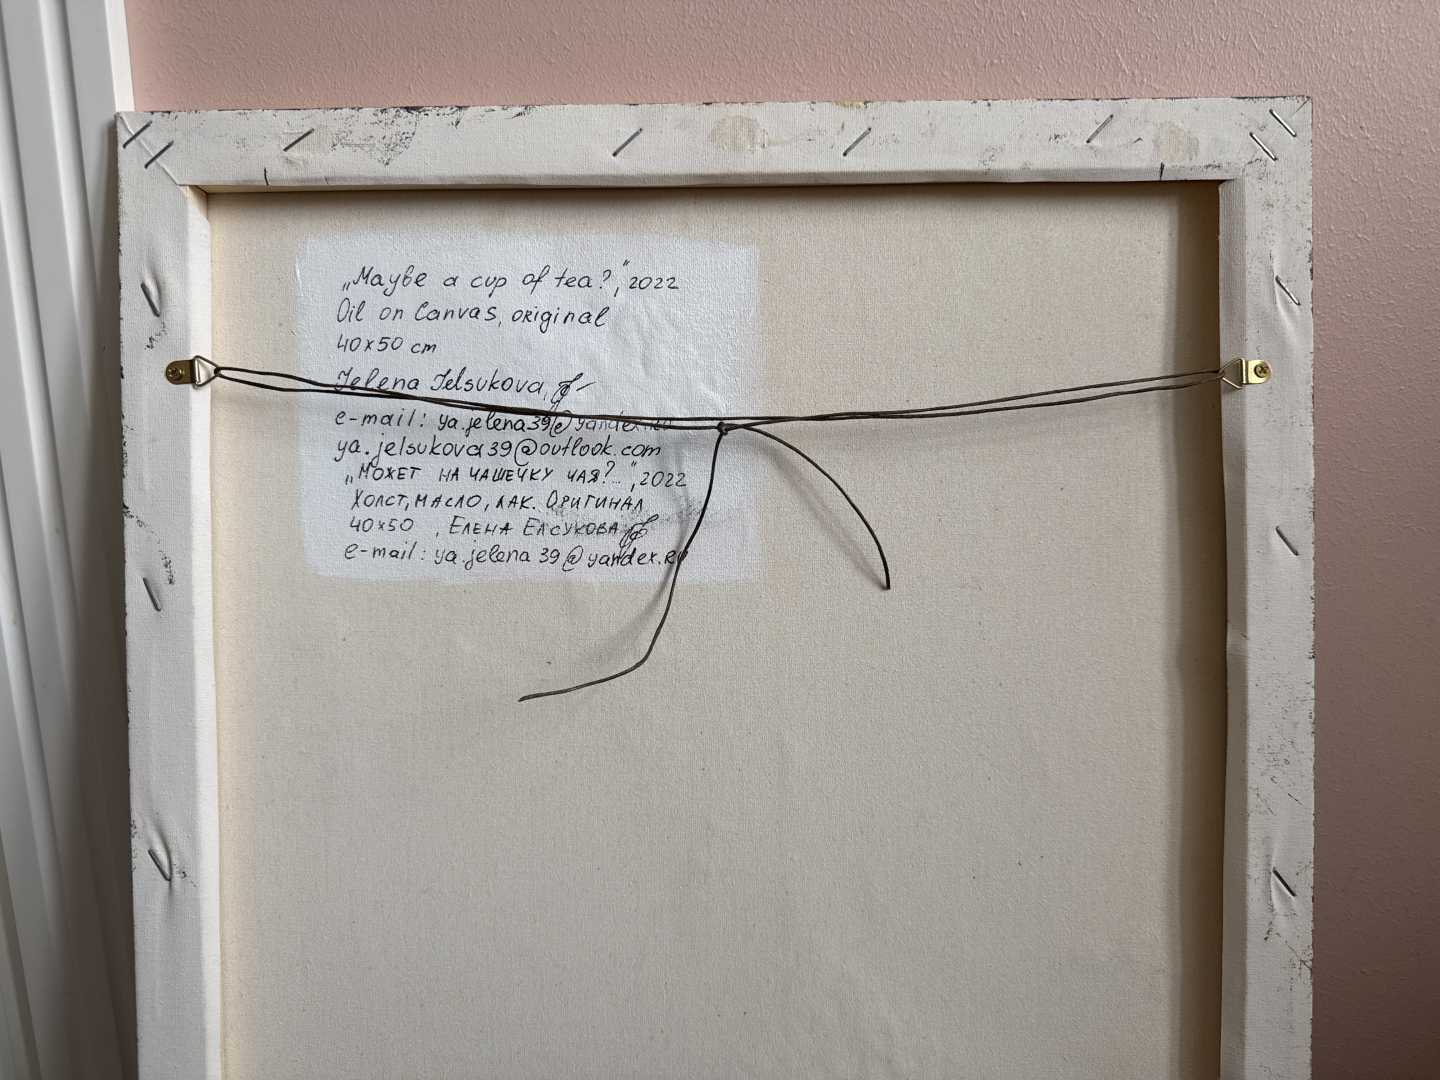 „Maybe a cup of tea?", 2022
Oil on Canvas, original
40x50 cm
Jelena Jelsukova,
e-mail: ya.jelena39@yandex.ru
ya.jelsukova39@outlook.com
„Может на чашечку чая?..", 2022
Холст, масло, лак. Оригинал
40x50, Елена Елсукова
e-mail: ya.jelena39@yandex.ru